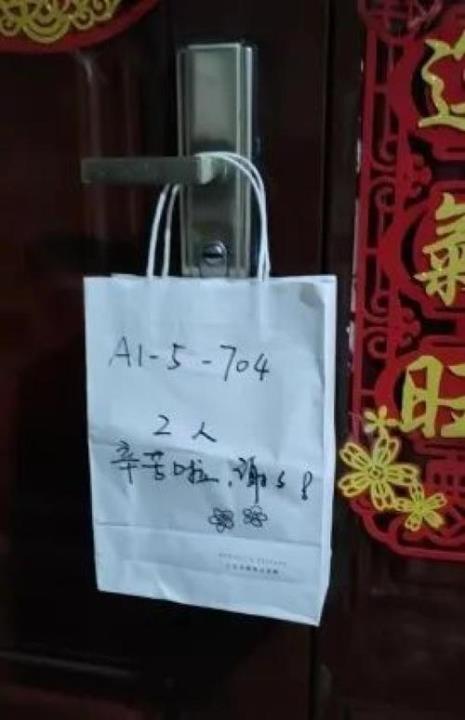 A1-5-704
2人
辛苦啦,谢谢!
氣
旺